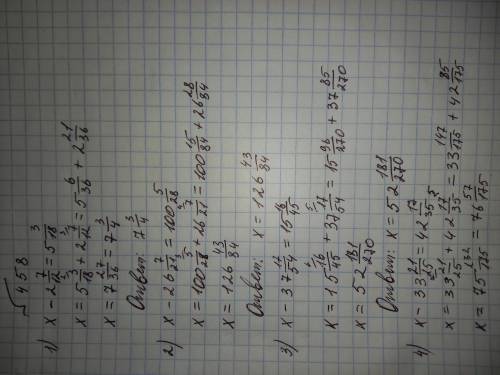 458
1) x - 2 7/12 = 5 3/18
x = 5 3/18 + 2 7/12 = 5 6/36 + 2 21/36
x = 7 27/36 = 7 3/4
Ответ: 7 3/4
2) x - 26 7/21 = 100 5/28
x = 100 5/28 + 26 7/21 = 100 15/84 + 26 28/84
x = 126 43/84
Ответ: x = 126 43/84
3) x - 37 17/54 = 15 16/45
x = 15 16/45 + 37 17/54 = 15 96/270 + 37 85/270
x = 52 181/270
Ответ: x = 52 181/270
4) x - 33 21/25 = 42 17/35
x = 33 21/25 + 42 17/35 = 33 147/175 + 42 85/175
x = 75 232/175 = 76 57/175